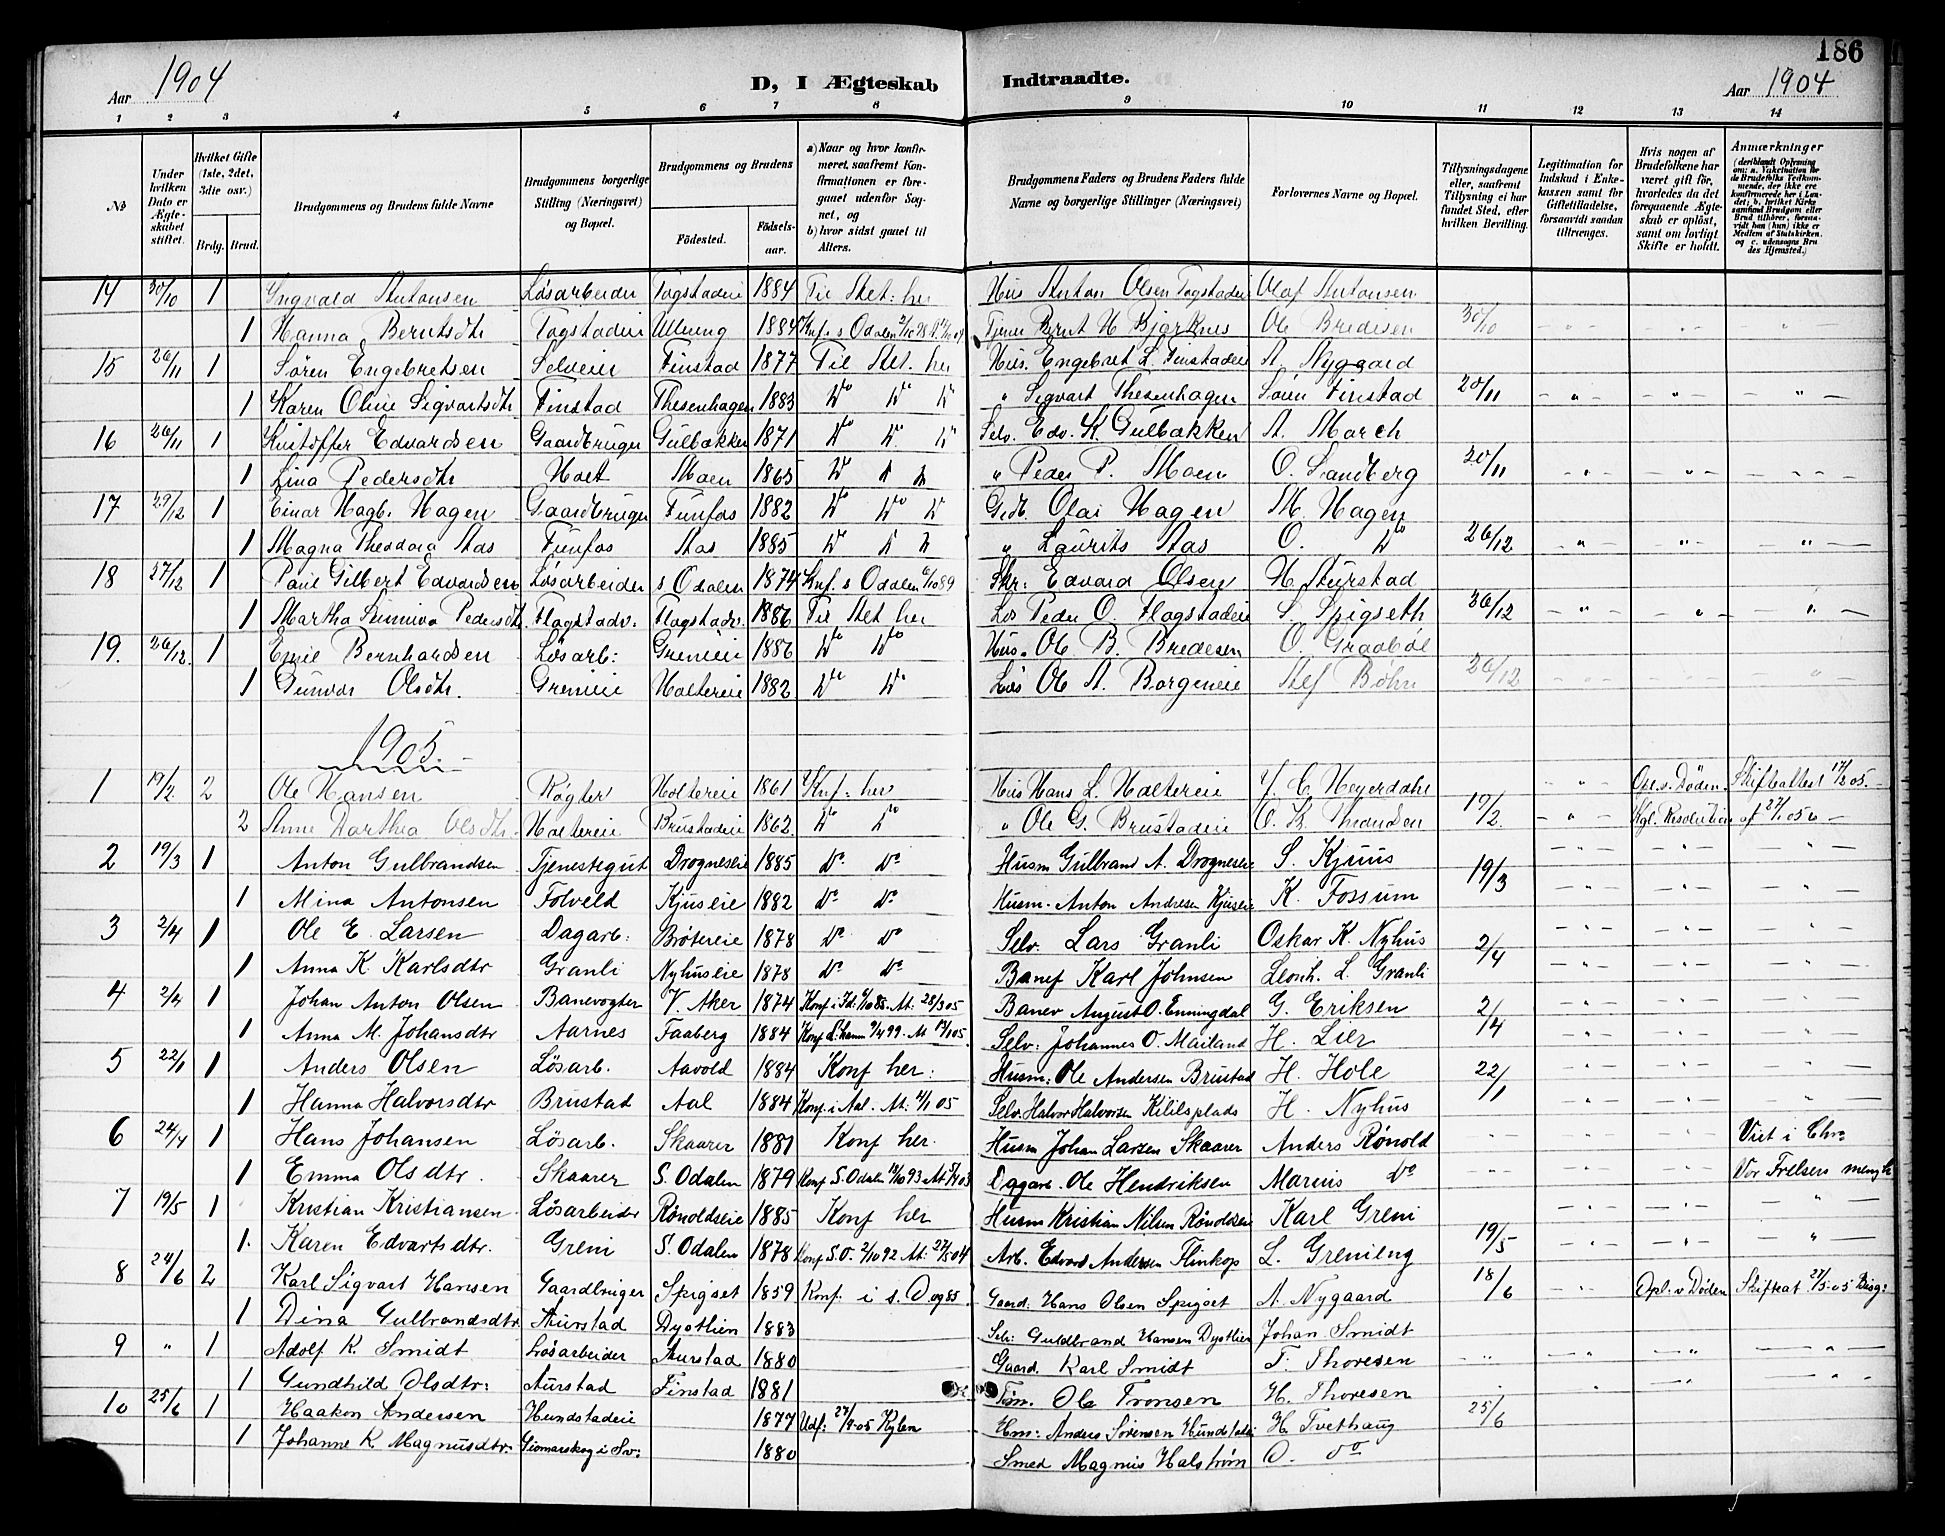 186
Aar 1904
D, I Ægteskab Indtraadte.
Aar 1904
1 2 3 4 5 6 7 8 9 10 11 12 13 14
№ | Under hvilken Dato er Ægteskabet stiftet. | Hvilket Gifte (1ste, 2det, 3die osv.) Brdg. Brud. | Brudgommens og Brudens fulde Navne | Brudgommens borgerlige Stilling (Næringsvei) og Bopæl. | Brudgommens og Brudens Fødested. | Fødselsaar. | a) Naar og hvor konfirmeret, saafremt Konfirmationen er foregaaet udenfor Sognet, og b) hvor sidst gaaet til Alters. | Brudgommens Faders og Brudens Faders fulde Navne og borgerlige Stillinger (Næringsvei) | Forlovernes Navne og Bopæl. | Tillysningsdagene eller, saafremt Tillysning ei har fundet Sted, efter hvilken Bevilling. | Legitimation for Indskud i Enkekassen samt for Giftetilladelse, forsaavidt saadan tiltrænges. | Hvis nogen af Brudefolkene har været gift før, hvorledes da det foregaaende Ægteskab er opløst, samt om lovligt Skifte er holdt. | Anmærkninger
14 30/10 1 Ingvald Antonsen Løsarbeider Togstadeie 1884 Til Alt: her Hus Anton Olsen Togstadeie Olaf Antonsen
1 Hanna Berntsdtr Togstadeie Ullreng 1884 Knf. s Odalen Tjener Bernt H Bjørknes Ole Bredesen 30/10
15 26/11 1 Søren Engebretsen Selveier Finstad 1877 Til Alt. her Hus. Engebret L. Finstadeie A. Nygaard
1 Karen Oline Sigvartsdtr Finstad Thesenhagen 1883 Do Do Do " Sigvart Thesenhagen Søren Finstad 20/11
16 26/11 1 Kristoffer Edvardsen Gaardbruger Gulbakken 1871 Do Do Do Selv. Edv. K. Gulbakken A. March
1 Lina Pedersdtr Holt Moen 1865 Do Do Do " Peder P. Moen O. Sandberg 20/11
17 29/12 1 Einar Hagb. Hagen Gaardbruger Funfos 1882 Do Do Do Grdb. Olai Hagen M. Hagen
1 Magna Theodora Aas Funfos Aas 1885 Do Do Do " Laurits Aas O. Do 26/12
18 27/12 1 Paul Gilbert Edvardsen Løsarbeider s Odalen 1874 Knf. s Odalen 6/10 89 Skr: Edvard Olsen H Aurstad
1 Martha Sunniva Pedersdtr. Flagstadv. Flagstadv. 1886 Til Alt her Løs Peder O. Flagstadeie S. Spigseth 26/12
19. 26/12. 1 Emil Bernhardsen Løsarb: Grenieie 1886 Do Do Hus. Ole B. Bredesen O. Graabøl
1 Gunvor Olsdtr. Grenieie Holtereie 1882 Do Do Løs Ole A. Borgeneie Alf Bøhn 26/12
1905
1 19/2. 2 Ole Hansen Røgter Holtereie 1861 Knf: her Hus Hans L. Holtereie J. C. Heyerdahl Opl. v. Døden. Skifteattest 17/2 05.
2 Anne Dorthea Olsdtr. Holtereie Brustadeie 1862 Do Do " Ole G. Brustadeie O. K. Knudsen 19/2. Kgl. Resolution af 27/1 05
2 19/3 1 Anton Gulbrandsen Tjenestegut Drogneseie 1885 Do Do Husm Gulbrand A. Drogneseie S. Kjuus
1 Mina Antonsen Folveld Kjuseie 1882 Do Do Husm. Anton Andersen Kjuseie K. Fossum 19/3
3 2/4 1 Ole E. Larsen Dagarb: Brøtereie 1878 Do Do Selv. Lars Granli Oskar K. Nyhus
1 Anna K. Karlsdtr Granli Nyhuseie 1878 Do Do Banef Karl Johnsen Leonh. L. Granli 2/4
4 2/4 1 Johan Anton Olsen Banevogter V. Aker 1874 Konf. i Id: 6/10 88. At: 28/3 05 Banev August O. Enningdal G. Eriksen
1 Anna M. Johansdtr Aarnes Faaberg 1884 Selv: Johannes O. Mailand H. Lier 2/4
5 22/1 1 Anders Olsen Løsarb. Aavold 1884 Konf her: Husm: Ole Andersen Brustad H. Hole
1 Hanna Halvorsdtr Brustad Aal 1884 Konf. i Aal. At: 4/1 05 Selv. Halvor Halvorsen Kililsplads H. Nyhus 22/1
6 24/4 1 Hans Johansen Løsarb. Skaarer 1881 Konf her. Husm Johan Larsen Skaarer Anders Rønold Viet i Chra
1 Emma Olsdtr. Skaarer S. Odalen 1879 Konf S. Odalen Daggarb. Ole Hendriksen Marius Do Vor Frelsers menigh
7 19/5 1 Kristian Kristiansen Løsarbeider Rønoldseie 1885 Konf her Husm Kristian Nilsen Rønoldseie Karl Greni
1. Karen Edvartsdtr. Greni S. Odalen 1878 Konf S. O. 2/10 92 At: 27/5 04 Arb. Edvard Andersen Flinkop L. Grenieng 19/5
8 24/6 2 Karl Sigvart Hansen Gaardbruger Spigset 1859 Konf. i s. O og 85. Gaard. Hans Olsen Spigset A. Nygaard 18/6 Opl. v Døden Skifteat 27/5 05
1 Dina Gulbrandsdtr Aurstad Dystlien 1883 Selv: Guldbrand Hansen Dystlien Johan Smidt
9 " 1 Adolf K. Smidt Løsarbeider Aurstad 1880 Gaard. Karl Smidt T. Thoresen
1 Gundhild Olsdtr: Aurstad Finstad 1881 Tøm. Ole Tronsen H. Thoresen
10 25/6 1 Haakon Andersen Hundstadeie 1877 Hm: Anders Sørensen Hundstadeie H Tvethaug 25/6
1 Johanne K. Magnusdtr: 1880 Smed Magnus Halstrøm O. do